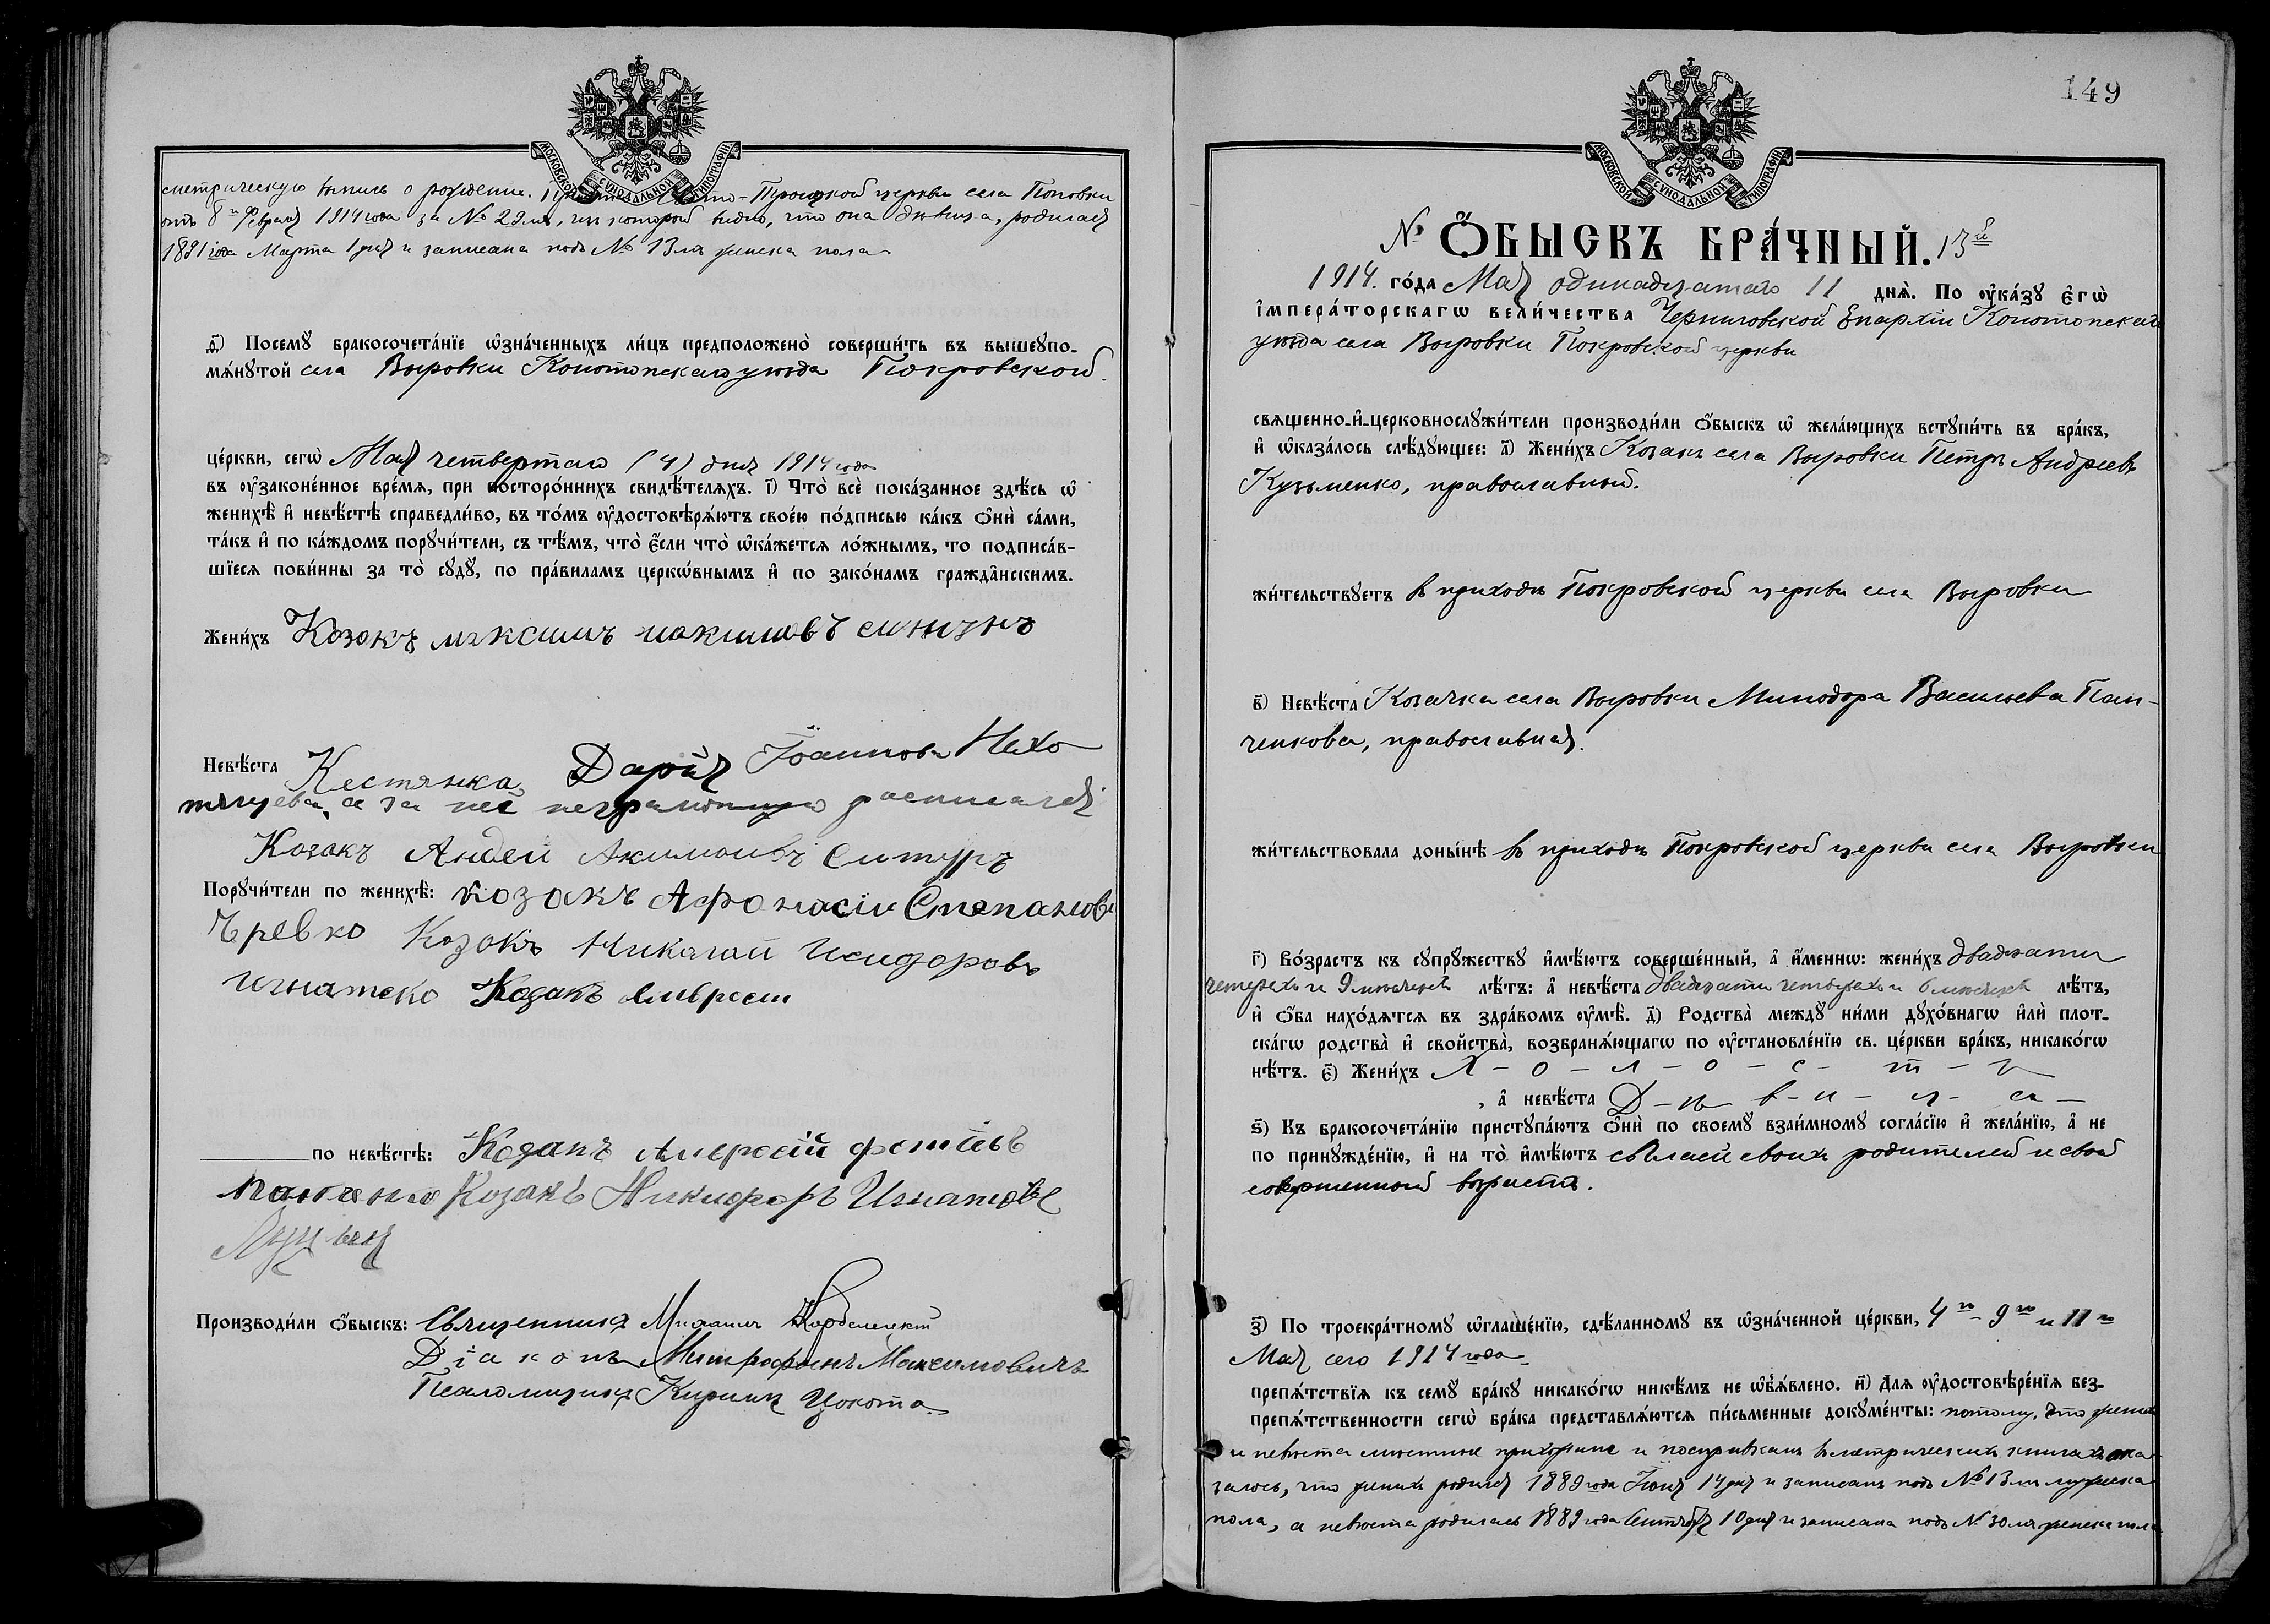 МОСКОВСКОЙ СѴНОДАЛЬНОЙ ТИПОГРАФІИ
метрическую выпись о рожденіи Троицкой церкви села Поповки
отъ 8го Февраля 1914 года за № 29мъ, изъ которой видно, что она дѣвица, родилась
1891 года Марта 1 дня и записана подъ № 13мъ женска пола
д҃) Посемꙋ бракосочета́нїе ѡ҆зна́ченныхъ ли́цъ предположено̀ соверши́ть въ вышеꙋпо-
мѧ́нꙋтой села Выровки Конотопскаго уѣзда Покровской
це́ркви, сегѡ̀ Мая четвертаго (4) дня 1914 года
въ ᲂу҆законе́нное вре́мѧ, при посторо́ннихъ свидѣ́телѧхъ. і҃) Что̀ всѐ пока́занное здѣ́сь ѡ҆
женихѣ̀ и҆ невѣ́стѣ справедли́во, въ то́мъ ᲂу҆достовѣрѧ́ютъ свое́ю по́дписью ка́къ ѻ҆нѝ са́ми,
та́къ и҆ по ка́ждомъ порꙋчи́тели, съ тѣ́мъ, что̀ є҆́сли что̀ ѡ҆ка́жетсѧ ло́жнымъ, то подписа́в-
шїесѧ пови́нны за то̀ сꙋдꙋ̀, по пра́виламъ церкѡ́внымъ и҆ по зако́намъ гражда̑нскимъ.
Жени́хъ Козакъ максимъ иакимовъ
Невѣ́ста Кестянка Дарія Іоаннова Нехо
а за нее неграмотную росписался
Козакъ Андей Акимовъ
Порꙋчи́тели по женихѣ̀: козакъ Афонасіи Степановъ
Чревко Козакъ Николай Исидоровъ
игнатеко Козакъ Амвросии
по невѣ́стѣ: Козакъ Амвросій
Козакъ Никифоръ Игнатовъ
Производи́ли ѻ҆́быскъ: Священникъ Михаилъ
Діаконъ Митрофанъ Максимовичъ
Псаломщикъ Кириллъ Цокота
149
МОСКОВСКОЙ СѴНОДАЛЬНОЙ ТИПОГРАФІИ
№ Ѻ҆́БЫСКЪ БРА́ЧНЫЙ. 13й
1914. го́да Мая одинадцатаго 11 днѧ̀. По ᲂу҆ка́зꙋ є҆гѡ̀
і҆мпера́торскагѡ вели́чества Черниговской Епархіи Конотопскаго
уѣзда села Выровки Покровской церкви
свѧщенно-и҆-церковнослꙋжи́тели производи́ли ѻ҆́быскъ ѡ҆ жела́ющихъ встꙋпи́ть въ бра́къ,
и҆ ѡ҆каза́лось слѣ́дꙋющее: а҃) Жени́хъ Козакъ села Выровки Петръ Андреевъ
Кузьменко, православный.
жи́тельствꙋетъ въ приходѣ Покровской церкви села Выровки
в҃) Невѣ́ста Козачка села Выровки Минодора Васильева Пан-
ченкова, православная.
жи́тельствовала доны́нѣ въ приходѣ Покровской церкви села Выровки
г҃) Во́зрастъ къ сꙋпрꙋ́жествꙋ и҆мѣ́ютъ соверше́нный, а҆ и҆́меннѡ: жени́хъ двадцати
четырехъ и 9 мѣсяцевъ лѣ́тъ: а҆ невѣ́ста двадцати четырехъ и 6 мѣсяцевъ лѣ́тъ,
и҆ ѻ҆́ба нахо́дѧтсѧ въ здра́вомъ ᲂу҆мѣ̀. д҃) Родства̀ междꙋ ни́ми дꙋхо́внагѡ и҆лѝ плот-
ска́гѡ родства̀ и҆ свойства̀, возбранѧ́ющагѡ по ᲂу҆становле́нїю св. це́ркви бра́къ, никако́гѡ
нѣ́тъ. є҃) Жени́хъ Х-о-л-о-с-т-ъ
, а҆ невѣ́ста Д-ѣ-в-и-ц-а-
ѕ҃) Къ бракосочета́нїю пристꙋпа́ютъ ѻ҆нѝ по своемꙋ̀ взаи́мномꙋ согла́сїю и҆ жела́нїю, а҆ не
по принꙋжде́нїю, и҆ на то̀ и҆мѣ́ютъ своихъ родителей и свой
совершенной возраста.
з҃) По троекра́тномꙋ ѡ҆глаше́нїю, сдѣ́ланномꙋ въ ѡ҆зна́ченной це́ркви, 4го 9го и 11го
Мая сего 1914 года
препѧ́тствїѧ къ семꙋ̀ бра́кꙋ никако́гѡ никѣ́мъ не ѡ҆б̾ѧ́влено. и҃) Для ᲂу҆достовѣре́нїѧ без-
препѧ́тственности сегѡ̀ бра́ка представлѧ́ютсѧ пи́сьменные докꙋме́нты: потому, что женихъ
и невѣста мѣстные прихожане и по справкамъ въ метрическихъ книгахъ ока-
залось, что женихъ родился 1889 года Іюня 14 дня и записанъ подъ № 13мъ мужеска
пола, а невѣста родилась 1889 года Сентября 10 дня и записана подъ № 30мъ женска пола